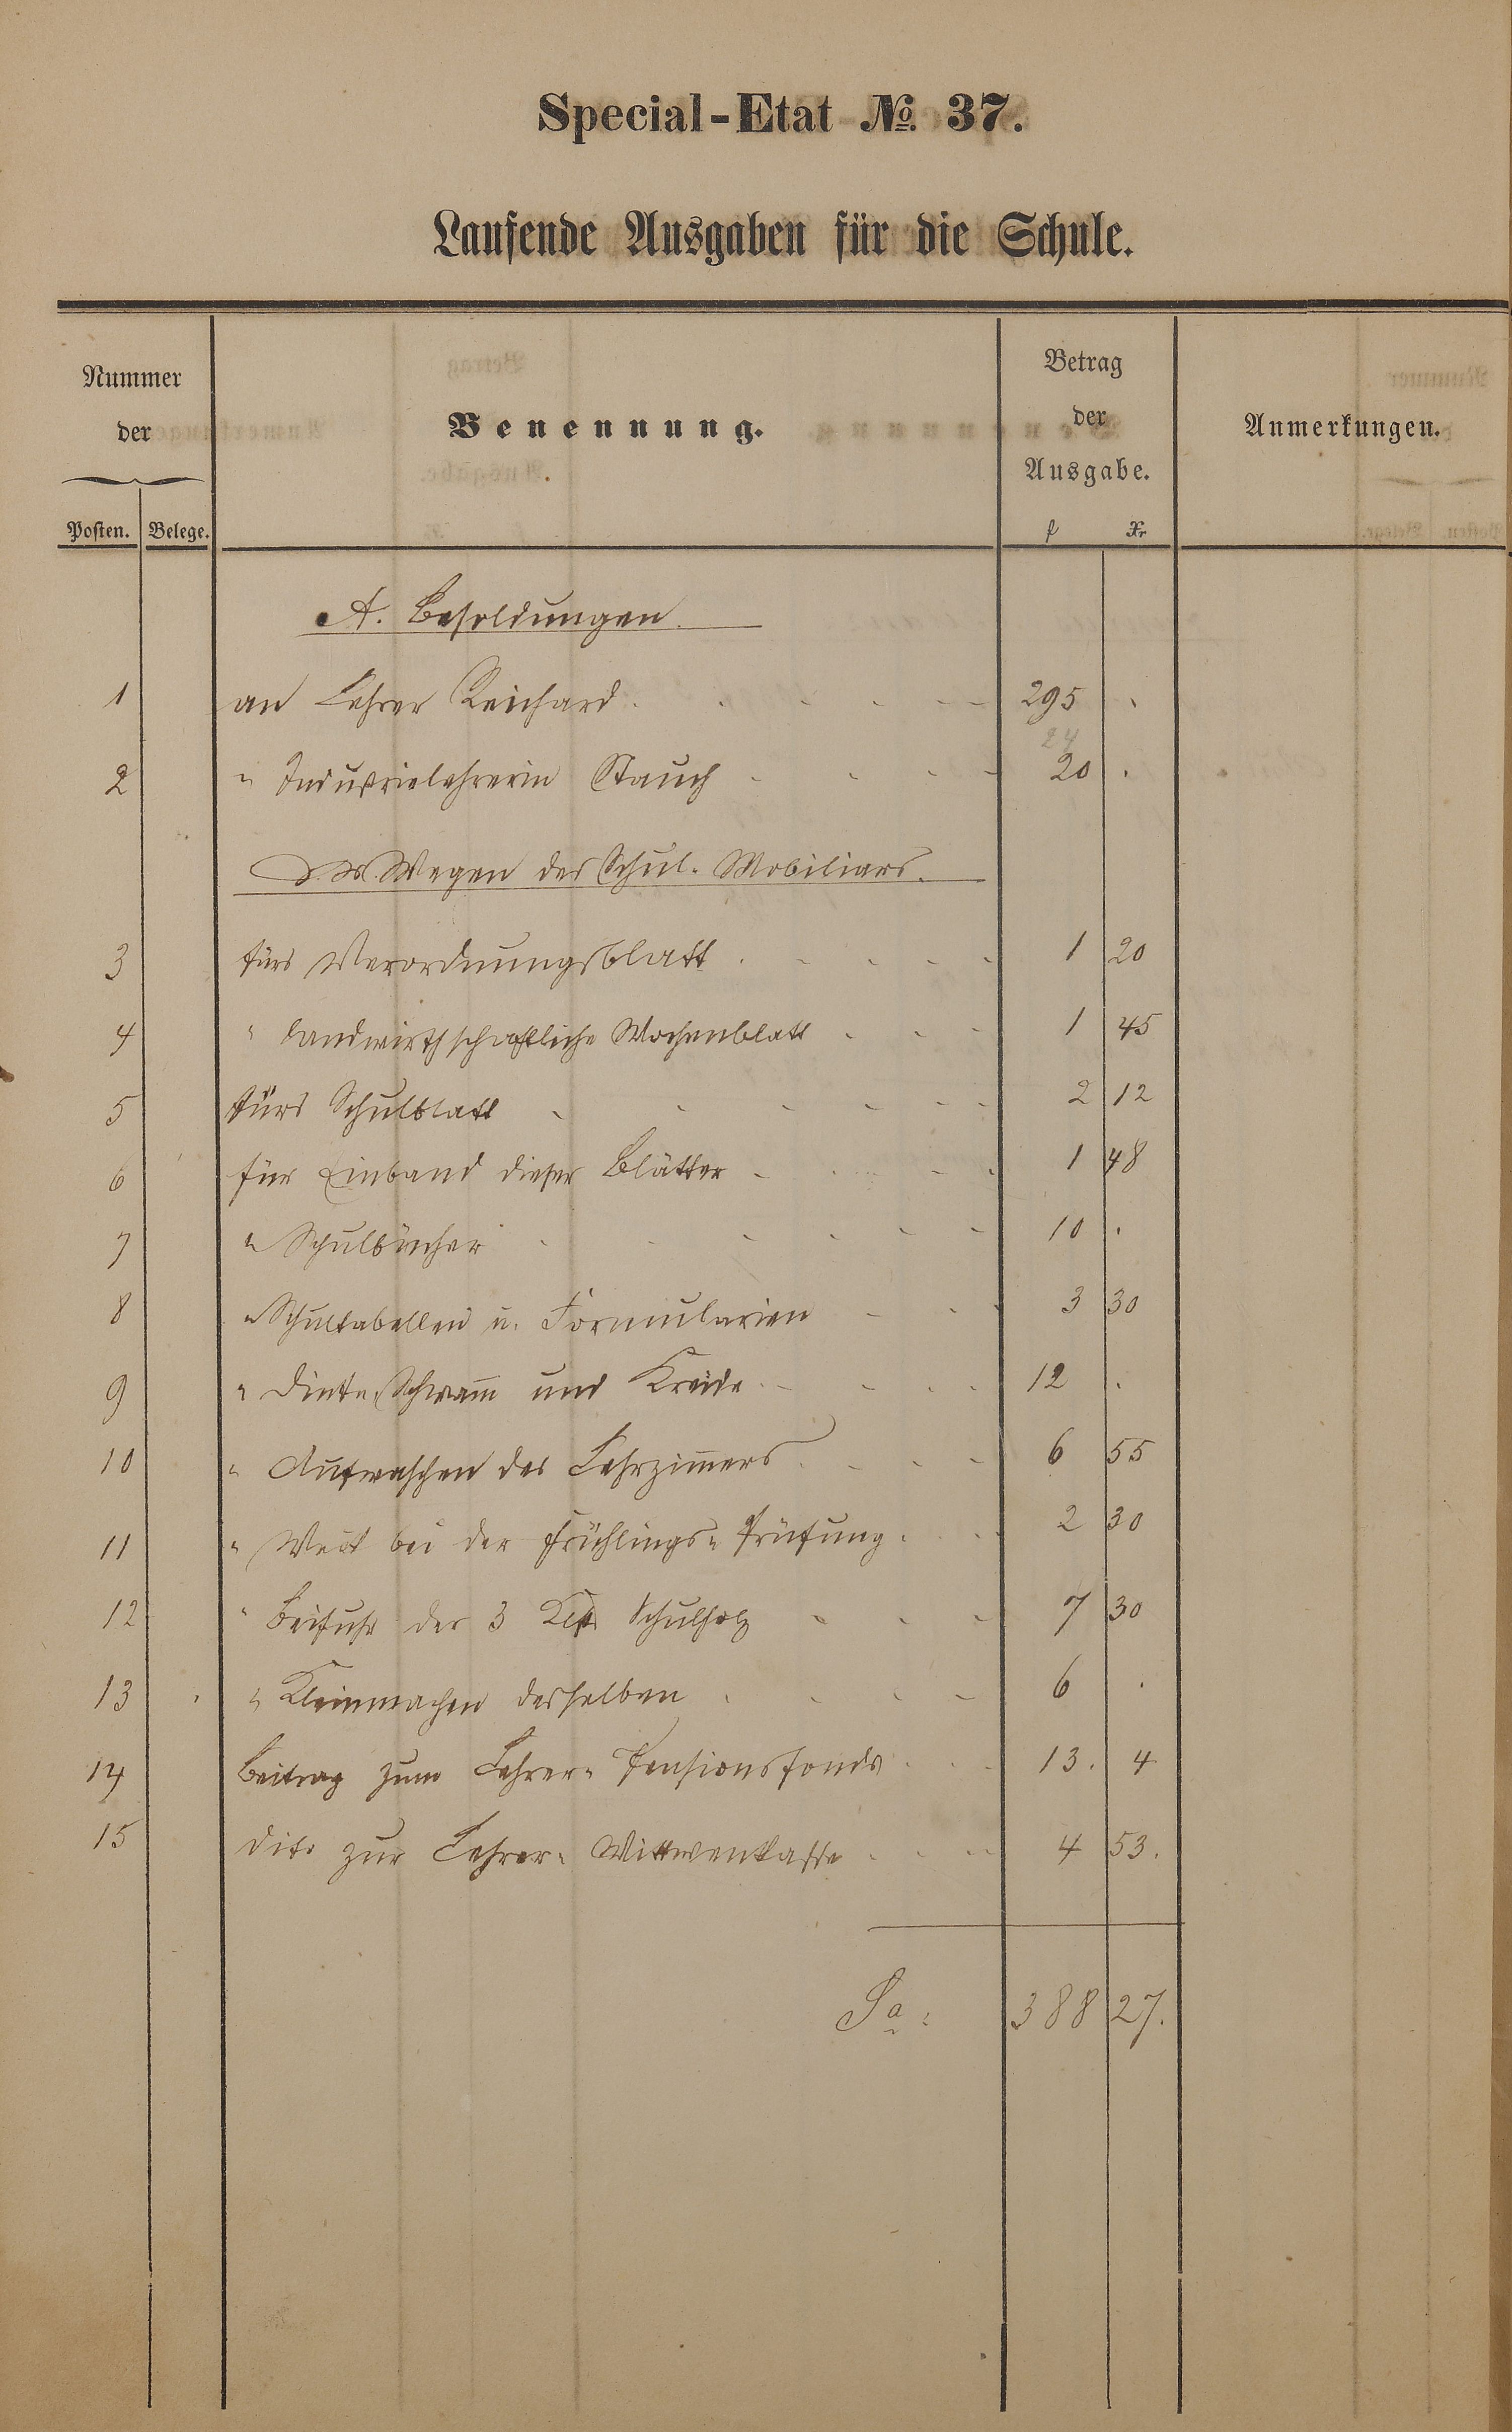 Special-Etat No. 37.
Laufende Ausgaben für die Schule.
Nummer
der
Posten. Belege.
Benennung.
Betrag
der
Ausgabe.
f Xr
Anmerkungen.
A. Besoldungen.
1 an Lehrer Reichard 295 .
24
2 " Industrielehrerin Stauch 20 .
Wegen des Schul-Mobiliars.
3 fürs Verordnungsblatt 1 20
4 " Landwirthschaftliche Wochenblatt 1 45
5 fürs Schulblatt 2 12
6 für Einband dieser Blätter 1 48
7 " Schulbücher 10 .
8 " Schultabellen u. Formularien 3 30
9 " Dinte, Schwam̅ und Kreide 12 .
10 " Aufwaschen des Lehrzim̅ers 6 55
11 " bei der Frühlings-Prüfung 2 30
12 " Beifuhr der 3 Schulholz 7 30
13 " Kleinmachen desselben 6 .
14 Beitrag zum Lehrer-Pensionsfonds 13. 4
15 dito zur Lehrer-Wittwenkasse 4 53.
Sa: 388 27.